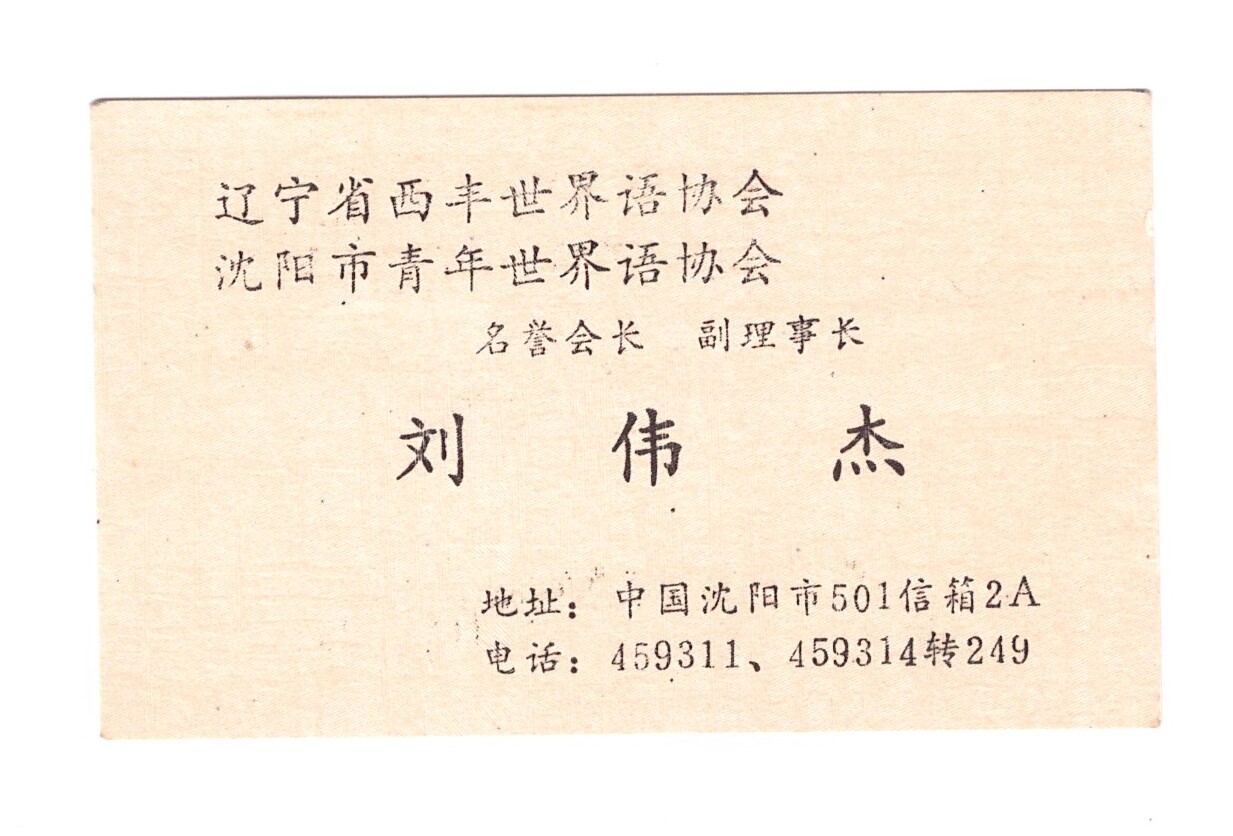 辽宁省西丰世界语协会
沈阳市青年世界语协会
名誉会长 副理事长
刘 伟 杰
地址：中国沈阳市501信箱2A
电话：459311、459314转249